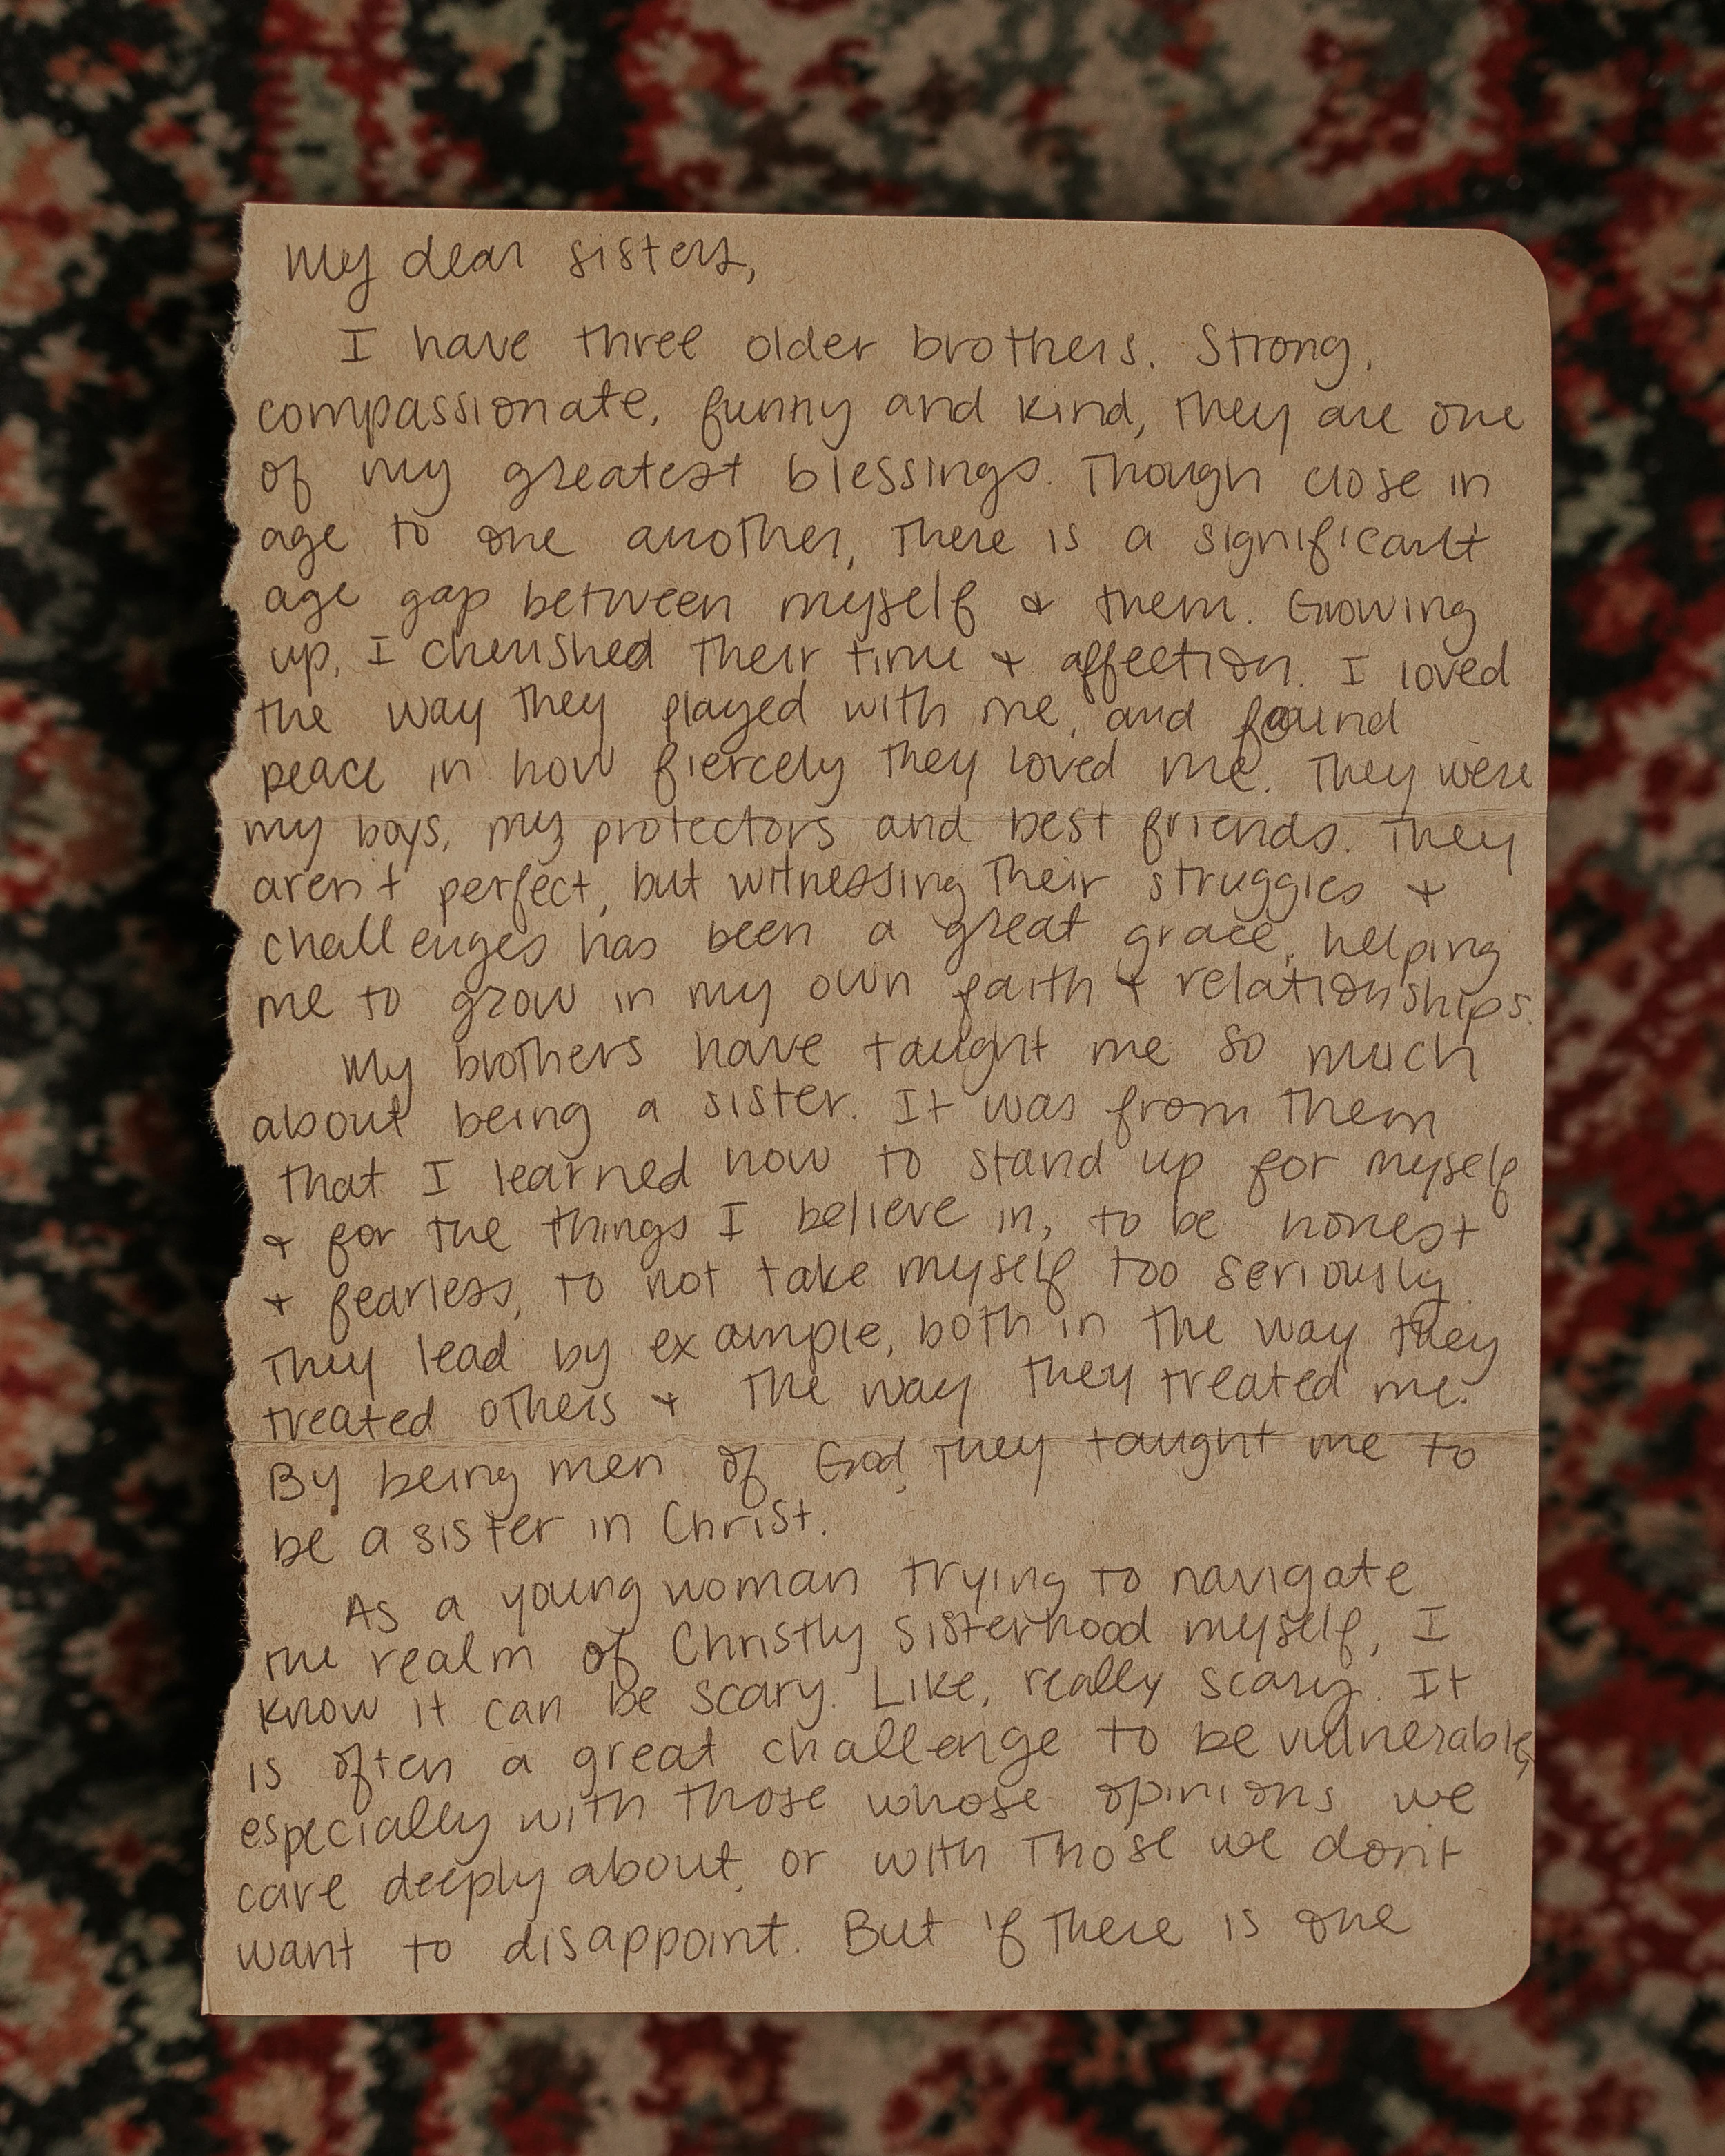 My dear sisters,
I have three older brothers. Strong,
compassionate, funny and kind, they are one
of my greatest blessings. Though close in
age to one another, there is a significant
age gap between myself & them. Growing
up, I cherished their time & affection. I loved
the way they played with me, and found
peace in how fiercely they loved me. They were
my boys, my protectors and best friends. They
aren't perfect, but witnessing their struggles &
challenges has been a great grace, helping
me to grow in my own faith & relationships.
My brothers have taught me so much
about being a sister. It was from them
that I learned how to stand up for myself
& for the things I believe in, to be honest
& fearless, to not take myself too seriously.
They lead by example, both in the way they
treated others & the way they treated me.
By being men of God, they taught me to
be a sister in Christ.
As a young woman trying to navigate
the realm of Christly sisterhood myself, I
know it can be scary. Like, really scary. It
is often a great challenge to be vulnerable,
especially with those whose opinions we
care deeply about, or with those we don't
want to disappoint. But if there is one